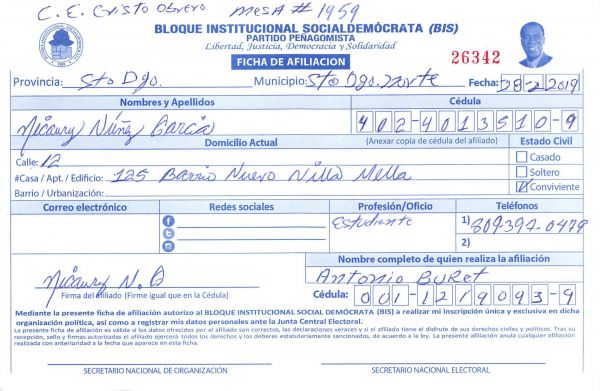 C. E. Cristo Obrero Mesa # 1959
BLOQUE INSTITUCIONAL SOCIALDEMÓCRATA (BIS)
PARTIDO PEÑAGOMISTA
Libertad, Justicia, Democracia y Solidaridad
FICHA DE AFILIACION
26342
Provincia: Sto Dgo. Municipio: Sto Dgo. Norte Fecha: 08-2-2019
Nombres y Apellidos Cédula
Nicaury Núñez Garcia 402-4013510-9
Domicilio Actual (Anexar copia de cédula del afiliado) Estado Civil
Calle: 12 Casado
#Casa / Apt. / Edificio: 125 Barrio Nuevo Villa Mella Soltero
Barrio / Urbanización: Conviviente
Correo electrónico Redes sociales Profesión/Oficio Teléfonos
Estudiante 1) 809-397-0479
2)
Nombre completo de quien realiza la afiliación
Nicaury N. G Antonio Buret
Firma del afiliado (Firme igual que en la Cédula) Cédula: 001-1219093-9
Mediante la presente ficha de afiliación autorizo al BLOQUE INSTITUCIONAL SOCIAL DEMÓCRATA (BIS) a realizar mi inscripción única y exclusiva en dicha
organización política, así como a registrar mis datos personales ante la Junta Central Electoral.
La presente ficha de afiliación en valida si los datos ofrecidos por el afiliado son correctos, las declaraciones verares y si el afiliado tiene el disfrute de sus derechos civiles y políticos. Tras su
recepción, sello y firmas autorizadas el afiliado ejercerá todos los derechos y los deberes estatutariamente sancionados, de acuerdo a la ley. La presente afiliación anula cualquier afiliación
realizada con anterioridad a la fecha que aparece en esta ficha.
SECRETARIO NACIONAL DE ORGANIZACIÓN SECRETARIO NACIONAL ELECTORAL